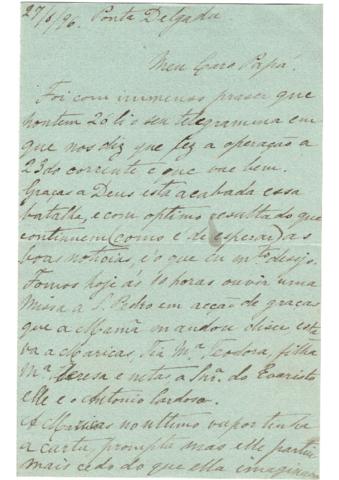 27/6/96. Ponta Delgada
Meu Caro Papá.
Foi com immenso praser que
hontem 26 li o seu telegramma em
que nos diz que fez a operação a
23 do corrente e que vae bem.
Graças a Deus está acabada essa
batalha, e com optimo resultado que
continuem (como é de esperar) as
boas noticias, é o que eu mto desejo.
Fomos hoje ás 10 horas ouvir uma
Missa a S. Pedro em acção de graças
que a Mamã mandou diser esta
va a Maricas, Tia Ma. Teodora, filha
Ma. Teresa e netas, a Snra. do Evaristo
elle e o Antonio Cardoso.
A Maricas no ultimo vapor tinha
a carta prompta mas elle partiu
mais cedo do que ella imaginava